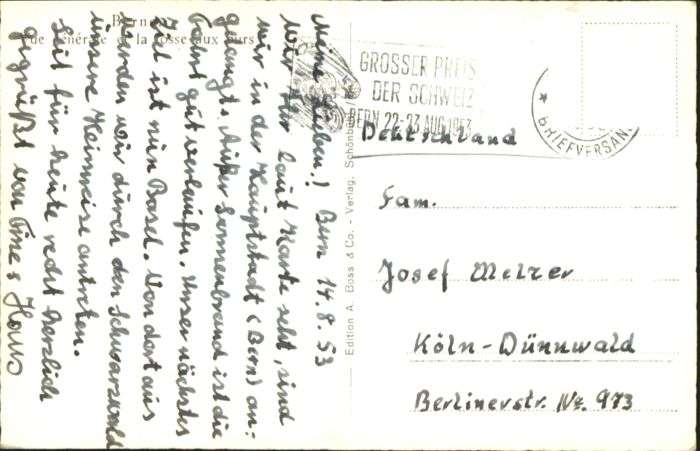 Berne
Vue générale et la fosse aux ours
Meine Lieben! Bern 14.8.53
Wie Ihr laut Karte seht, sind
wir in der Hauptstadt (Bern) an=
gelangt. Außer Sonnenbrand ist die
Fahrt gut verlaufen. Unser nächstes
Ziel ist nun Basel. Von dort aus
werden wir durch den Schwarzwald
unsere Heimreise antreten.
Seit für heute recht herzlich
gegrüßt von Hans
Edition A. Boss & Co. - Verlag, Schönb
GROSSER PREIS
DER SCHWEIZ
BERN 22-23 AUG 1953
* BRIEFVERSAN
Deutschland
Fam.
Josef Melzer
Köln-Dünnwald
Berlinerstr. Nr. 973